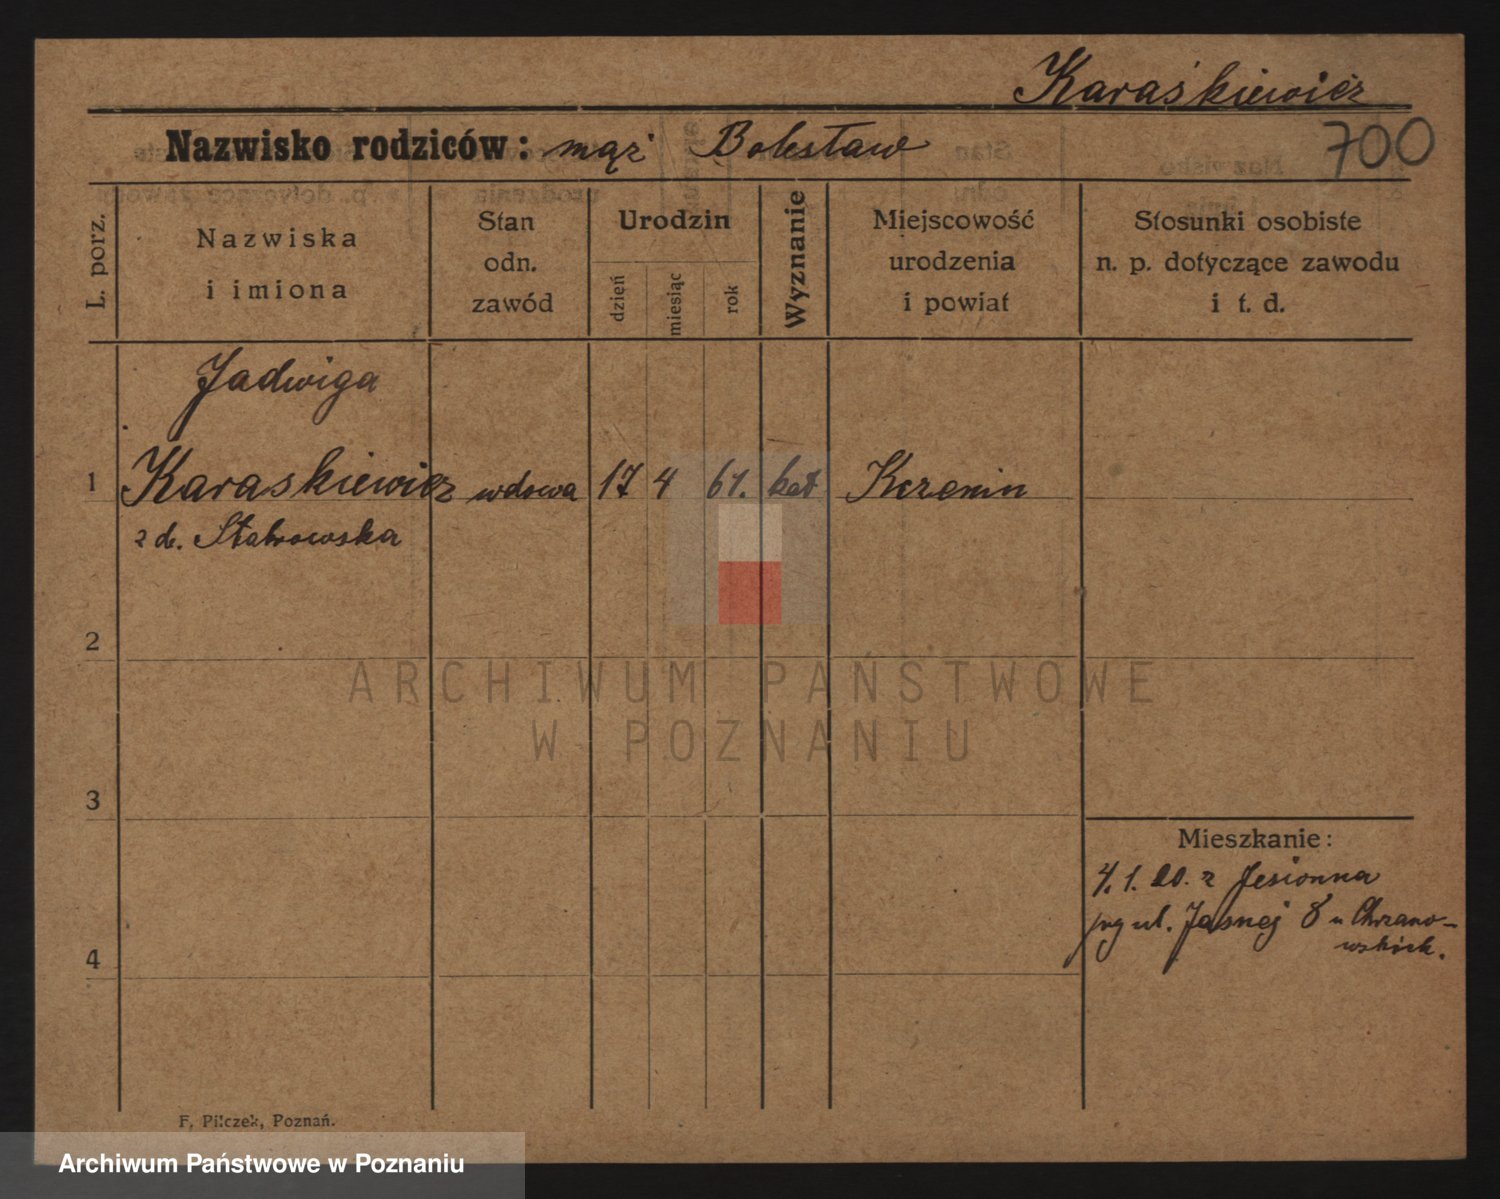 Karaśkiewicz
Nazwisko rodziców: mąż Bolesław
700
L. porz.
Nazwiska
i imiona
Stan
odn.
zawód
Urodzin
dzień
miesiąc
rok
Wyznanie
Miejscowość
urodzenia
i powiat
Stosunki osobiste
n. p. dotyczące zawodu
i t. d.
Jadwiga
1 Karaskiewicz wdowa 17 4 61. kat
z d. Stabrowska
2
ARCHIWUM PAŃSTWOWE
W POZNANIU
3
Mieszkanie:
4. 1. 20. z Jesionna
ul. Jasnej 8 u Chrzano-
wskich.
4
F. Pilczek, Poznań.
Archiwum Państwowe w Poznaniu